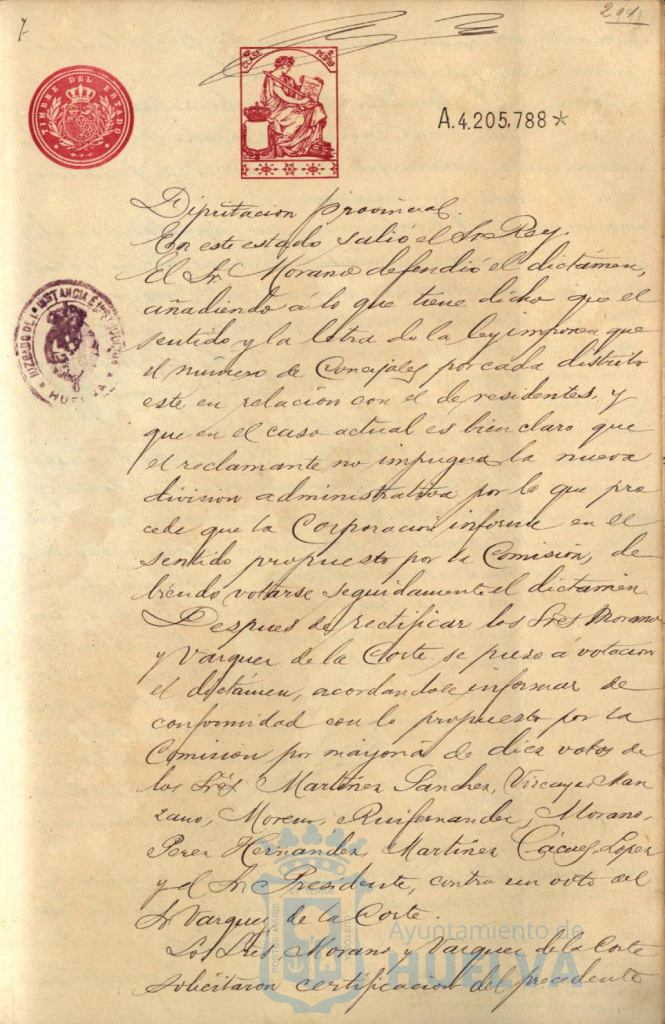 7
291
TIMBRE DEL ESTADO
CLASE
PESETAS
A.4.205,788*
Diputacion provincial.
En este estado salió el Sr. Rey.
El Sr. Morano defendió el dictámen,
añadiendo á lo que tiene dicho que el
sentido y la letra de la ley imponen que
el número de Concejales por cada distrito
este en relación con el de residentes, y
que en el caso actual es bien claro que
el reclamante no impugna la nueva
division administrativa por lo que pro
cede que la Corporacion informe en el
sentido propuesto por la Comisión, de
biendo votarse seguidamente el dictamen.
Despues de rectificar los Sres Morano
y Vazquez de la Corte, se puso á votacion
el dictámen, acordandose informar de
conformidad con lo propuesto por la
Comision por mayoria de diez votos de
los Sres Martinez Sanchez, Vizcaya, Man
zano, Moreno, Ruifernandez, Morano,
Perez Hernandez, Martinez Cáceres, Lopez
y el Sr. Presidente, contra un voto del
Sr Vazquez de la Corte.
Los Sres Morano y Vazquez de la Corte
solicitaron certificacion del precedente
JUZGADO DE 1ª INSTANCIA É INSTRUCCION
HUELVA
Ayuntamiento de
HUELVA